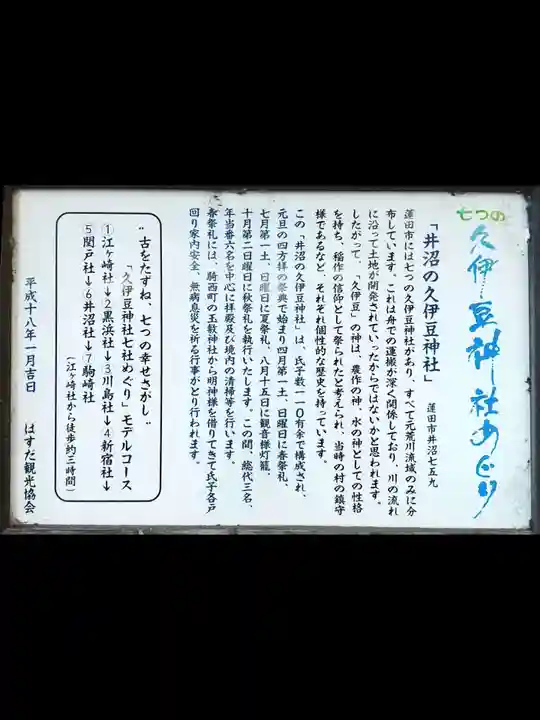 七つの
久伊豆神社めぐり
「井沼の久伊豆神社」
蓮田市井沼七五九
蓮田市には七つの久伊豆神社があり、すべて元荒川流域のみに分
布しています。これは舟での運搬が深く関係しており、川の流れ
に沿って土地が開発されていったからではないかと思われます。
したがって、「久伊豆」の神は、農作の神、水の神としての性格
を持ち、稲作の信仰として祭られたと考えられ、当時の村の鎮守
様であるなど、それぞれ個性的な歴史を持っています。
この「井沼の久伊豆神社」は、氏子数一一〇有余で構成され、
元旦の四方拝の祭典で始まり四月第一土、日曜日に春祭礼、
七月第一土、日曜日に夏祭礼、八月十五日に観音様灯籠、
十月第二日曜日に秋祭礼を執行いたします。この間、総代三名、
年当番六名を中心に拝殿及び境内の清掃等を行います。
春祭礼には、騎西町の玉敷神社から明神様を借りてきて氏子各戸
回り家内安全、無病息災を祈る行事がとり行われます。
"古をたずね、七つの幸せさがし"
「久伊豆神社七社めぐり」モデルコース
①江ヶ崎社→②黒浜社→③川島社→④新宿社→
⑤閏戸社→⑥井沼社→⑦駒崎社
(江ヶ崎社から徒歩約三時間)
平成十八年一月吉日　はすだ観光協会